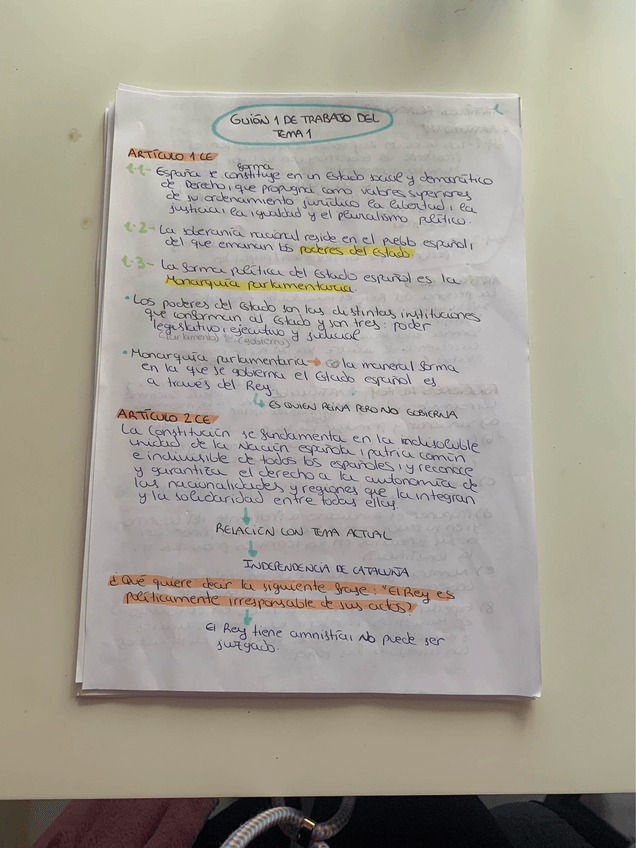 GUIÓN 1 DE TRABAJO DEL
TEMA 1
ARTÍCULO 1 CE
forma
1.1- España se constituye en un Estado social y democrático
de Derecho, que propugna como valores superiores
de su ordenamiento jurídico la libertad, la
justicia, la igualdad y el pluralismo político.
1.2- La soberanía nacional reside en el pueblo español,
del que emanan los poderes del Estado.
1.3- La forma política del Estado español es la
Monarquía parlamentaria
• Los poderes del Estado son las distintas instituciones
que conforman al Estado y son tres: poder
legislativo, ejecutivo y judicial
(Parlamento) (gobierno)
• Monarquía parlamentaria → es la manera/forma
en la que se gobierna el Estado español es
a través del Rey
↳ ES QUIEN REINA PERO NO GOBIERNA
ARTÍCULO 2 CE
La Constitución se fundamenta en la indisoluble
unidad de la Nación española, patria común
e indivisible de todos los españoles, y reconoce
y garantiza el derecho a la autonomía de
las nacionalidades y regiones que la integran
y la solidaridad entre todas ellas.
↓
RELACIÓN CON TEMA ACTUAL
↓
INDEPENDENCIA DE CATALUÑA
¿Qué quiere decir la siguiente frase: "El Rey es
políticamente irresponsable de sus actos?
↓
El Rey tiene amnistía, NO puede ser
juzgado.